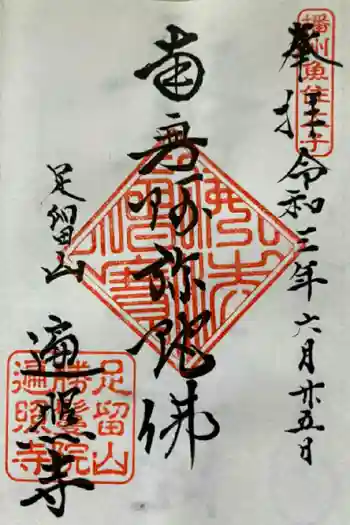 奉拝 令和三年 六月廿五日
南無阿弥陀佛
足留山
遍照寺
播州魚住
佛法僧寳
足留山
勝鬘院
遍照寺